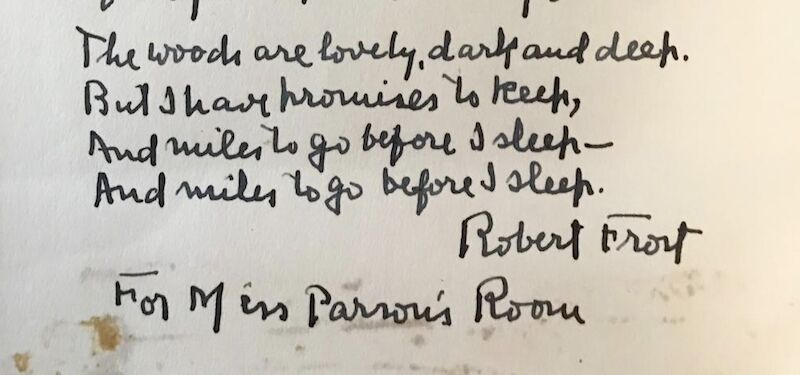 The woods are lovely, dark and deep.
But I have promises to keep,
And miles to go before I sleep—
And miles to go before I sleep.
Robert Frost
For Miss Parson's Room